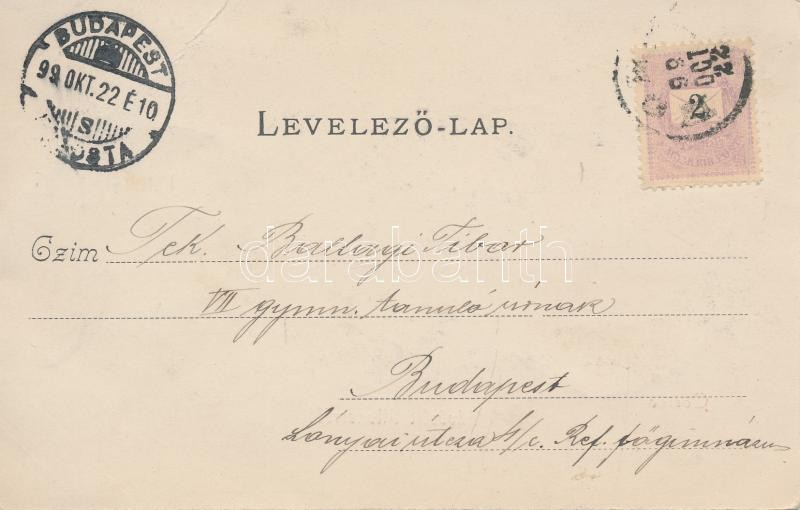 BUDAPEST
99 OKT. 22 É 10
S
POSTA
99 OCT 22
2
LEVELEZŐ-LAP.
Czim Tek. Ballagi Tibor
VII gymn. tanuló úrnak
darabanth
Budapest
Lónyai utcza 4/c. Ref. főgimnázium